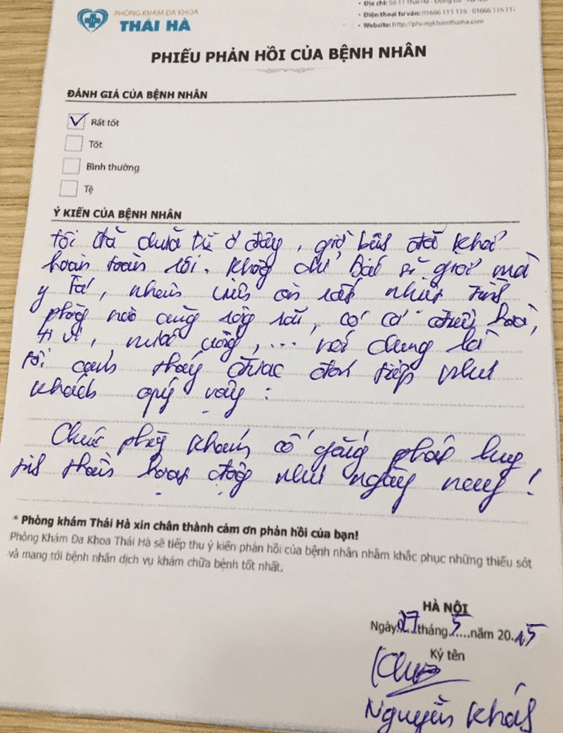 PHÒNG KHÁM ĐA KHOA
THÁI HÀ
• Địa chỉ: Số 11 Thái Hà - Đống Đa
• Điện thoại tư vấn: 01666 115 116 - 01666 116 117
• Website: http://phongkhamthaiha.com
PHIẾU PHẢN HỒI CỦA BỆNH NHÂN
ĐÁNH GIÁ CỦA BỆNH NHÂN
Rất tốt
Tốt
Bình thường
Tệ
Ý KIẾN CỦA BỆNH NHÂN
Tôi đã chữa trĩ ở đây, giờ bệnh đã khỏi
hoàn toàn rồi. Không chỉ bác sĩ giỏi mà
y tá, nhân viên còn rất nhiệt tình,
phòng nào cũng rộng rãi, có cả điều hoà,
ti vi, nước uống, ... nói chung là
tôi cảm thấy được đón tiếp như
khách quý vậy.
Chúc phòng khám cố gắng phát huy
tinh thần hoạt động như ngày nay!
* Phòng khám Thái Hà xin chân thành cảm ơn phản hồi của bạn!
Phòng Khám Đa Khoa Thái Hà sẽ tiếp thu ý kiến phản hồi của bệnh nhân nhằm khắc phục những thiếu sót
và mang tới bệnh nhân dịch vụ khám chữa bệnh tốt nhất.
HÀ NỘI
Ngày 27 tháng 5 năm 2015
Ký tên
Nguyễn Khải